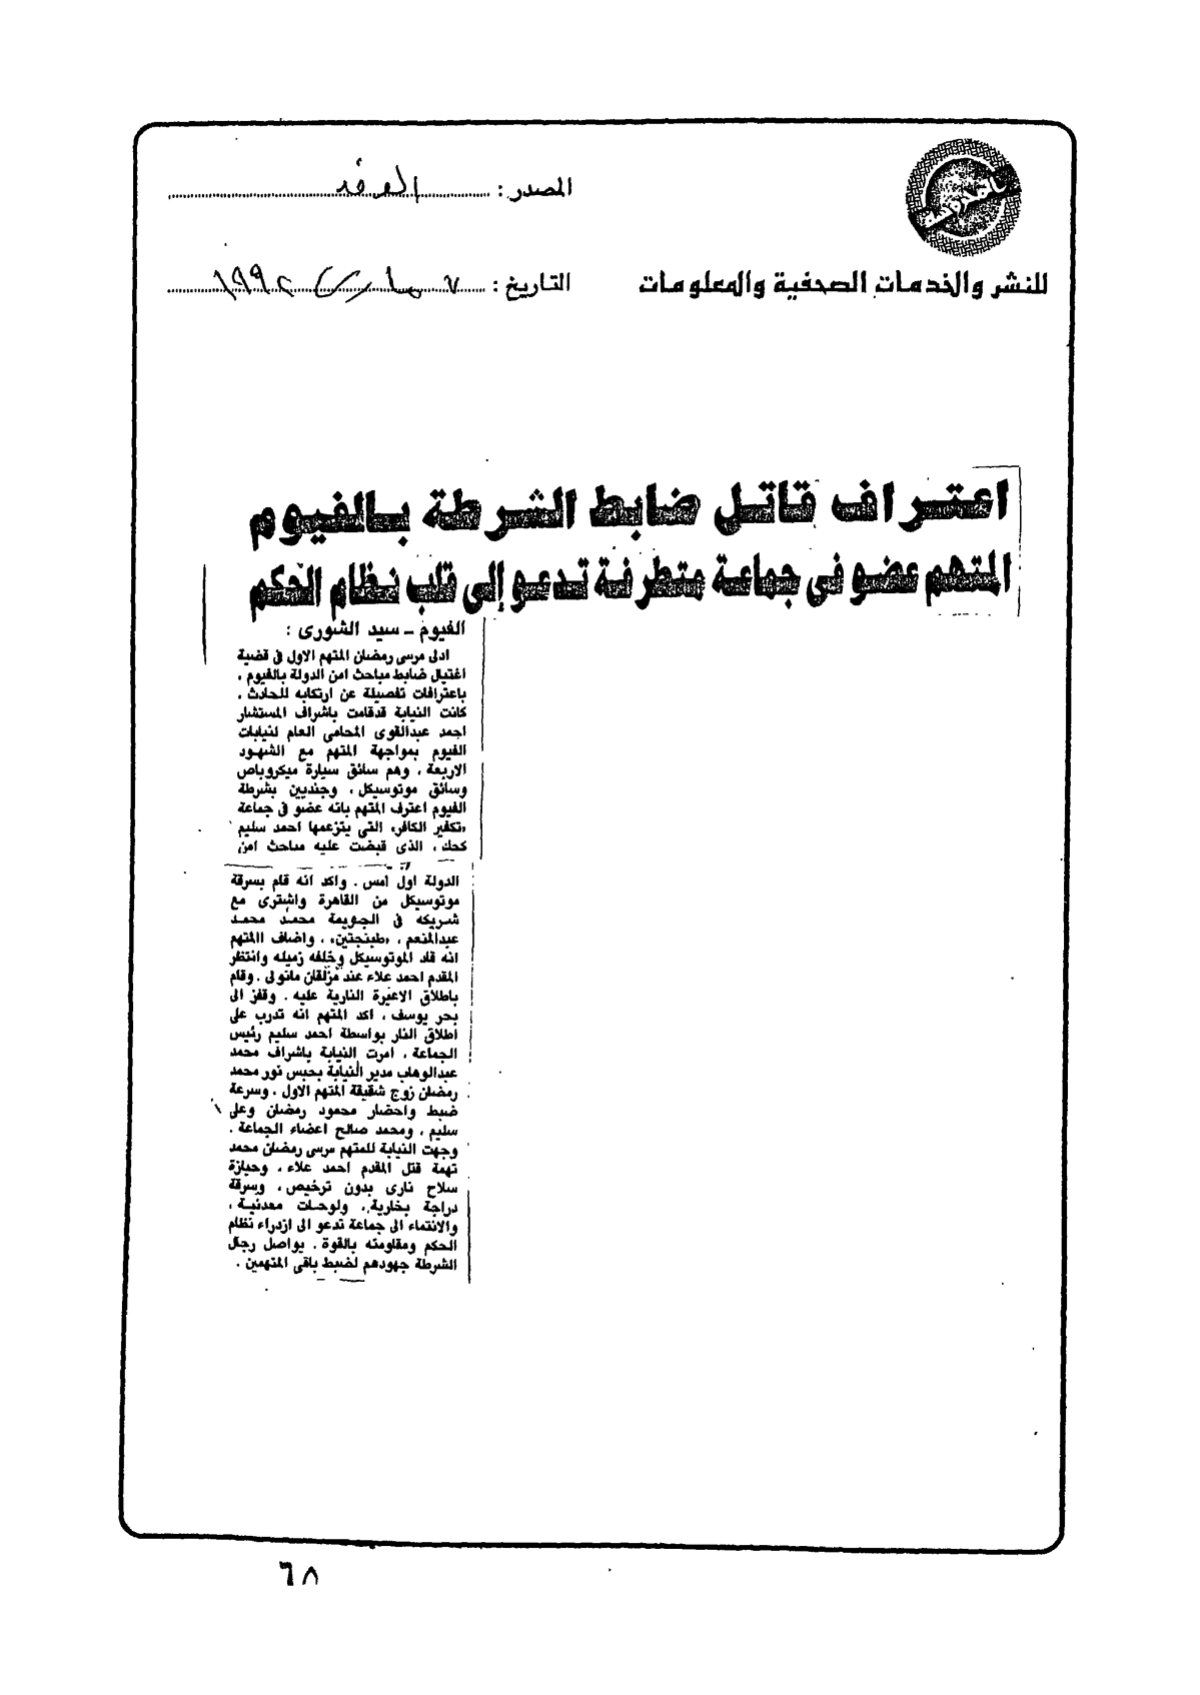 المصدر : الوفد
للنشر والخدمات الصحفية والمعلومات
التاريخ : ٧ مارس ١٩٩٢
اعتراف قاتل ضابط الشرطة بالفيوم
المتهم عضو فى جماعة متطرفة تدعو إلى قلب نظام الحكم
الفيوم ـ سيد الشورى :
ادلى مرسى رمضان المتهم الاول فى قضية
اغتيال ضابط مباحث امن الدولة بالفيوم .
باعترافات تفصيلة عن ارتكابه للحادث .
كانت النيابة قدقامت باشراف المستشار
احمد عبدالقوى المحامى العام لنيابات
الفيوم بمواجهة المتهم مع الشهود
الاربعة ، وهم سائق سيارة ميكروباص
وسائق موتوسيكل ، وجنديين بشرطة
الفيوم اعترف المتهم بانه عضو فى جماعة
«تكفير الكافر» التى يتزعمها احمد سليم
كحك ، الذى قبضت عليه مباحث امن
الدولة اول أمس . واكد انه قام بسرقة
موتوسيكل من القاهرة واشترى مع
شريكه فى الجريمة محمد محمد
عبدالمنعم ، «طبنجتين» ، واضاف االمتهم
انه قاد الموتوسيكل وخلفه زميله وانتظر
المقدم احمد علاء عند مزلقان مانولى . وقام
باطلاق الاعيرة النارية عليه . وقفز الى
بحر يوسف . اكد المتهم انه تدرب على
اطلاق النار بواسطة احمد سليم رئيس
الجماعة . امرت النيابة باشراف محمد
عبدالوهاب مدير النيابة بحبس نور محمد
رمضان زوج شقيقة المتهم الاول . وسرعة
ضبط واحضار محمود رمضان وعلى
سليم ، ومحمد صالح اعضاء الجماعة .
وجهت النيابة للمتهم مرسى رمضان محمد
تهمة قتل المقدم احمد علاء ، وحيازة
سلاح نارى بدون ترخيص ، وسرقة
دراجة بخارية ، ولوحات معدنية ،
والانتماء الى جماعة تدعو الى ازدراء نظام
الحكم ومقاومته بالقوة . يواصل رجال
الشرطة جهودهم لضبط باقى المتهمين .
٦٨